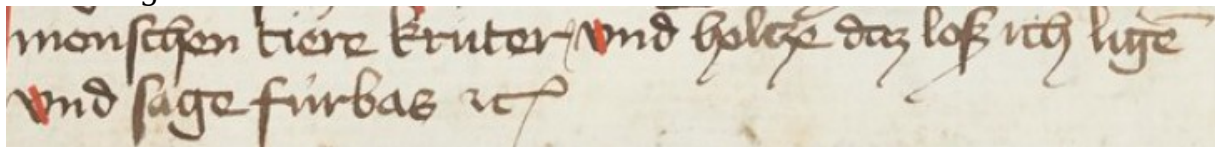 menschen tiere kruter vnd holcze daz losz ich ligē
vnd sage fúrbas ⁊c̃